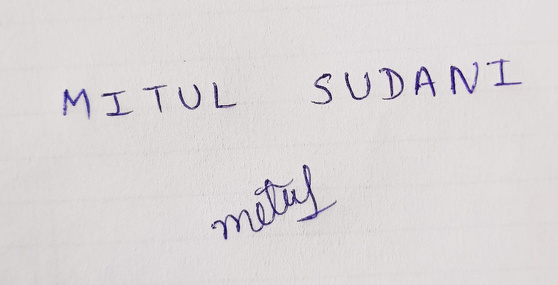 MITUL SUDANI
mitul